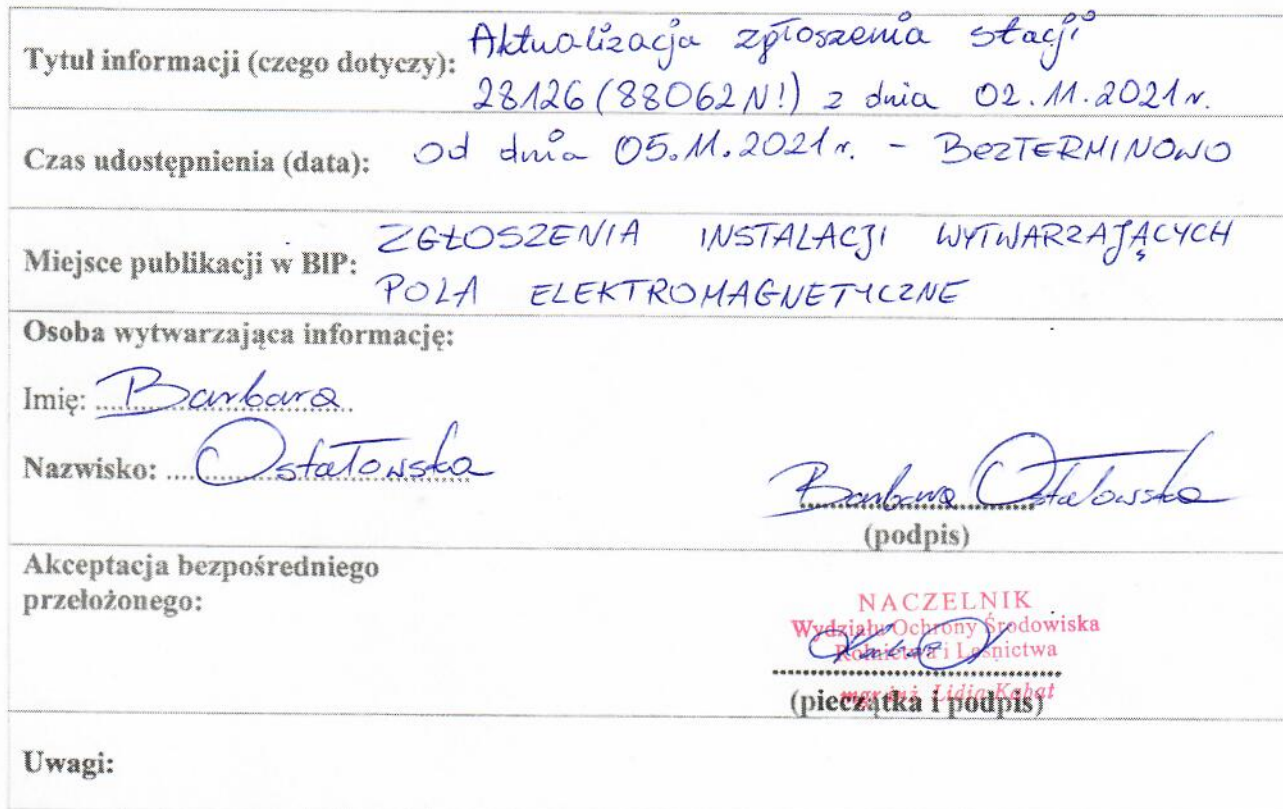 Tytuł informacji (czego dotyczy): Aktualizacja zgłoszenia stacji
28126 (88062N!) z dnia 02.11.2021 r.
Czas udostępnienia (data): od dnia 05.11.2021 r. - BEZTERMINOWO
Miejsce publikacji w BIP: ZGŁOSZENIA INSTALACJI WYTWARZAJĄCYCH
POLA ELEKTROMAGNETYCZNE
Osoba wytwarzająca informację:
Imię: Barbara
Nazwisko: Ostałowska
Barbara Ostałowska
(podpis)
Akceptacja bezpośredniego
przełożonego:
NACZELNIK
Wydziału Ochrony Środowiska
Rolnictwa i Leśnictwa
mgr inż. Lidia Kabat
(pieczątka i podpis)
Uwagi: